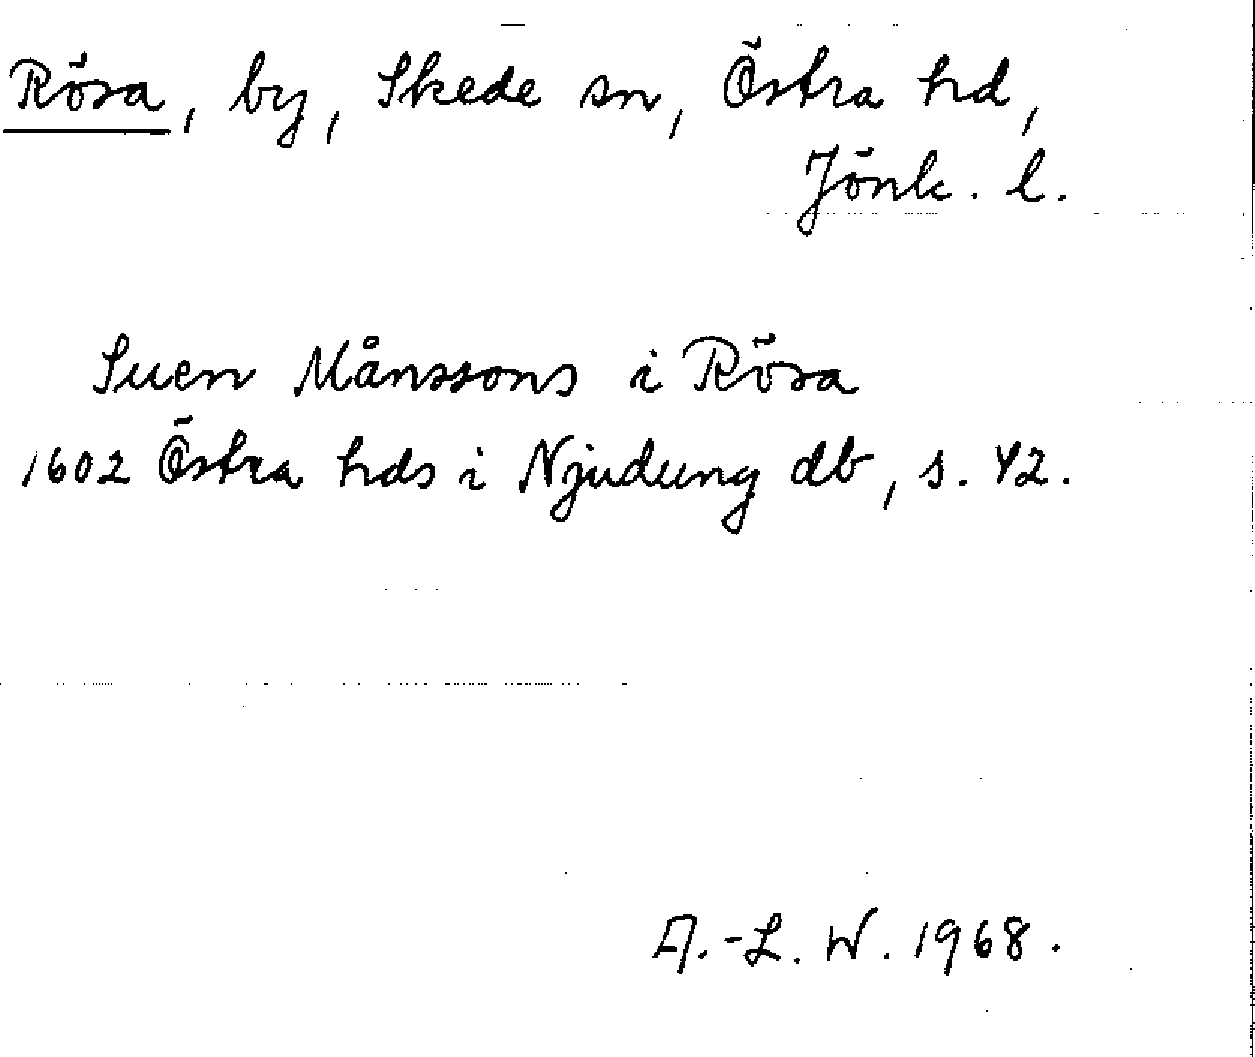 Rösa, by, Skede sn, Östra hd,
Jönk. l.
Suen Månssons i Rösa
1602 Östra hds i Njudung db, s. 42.
A.-L. W. 1968.